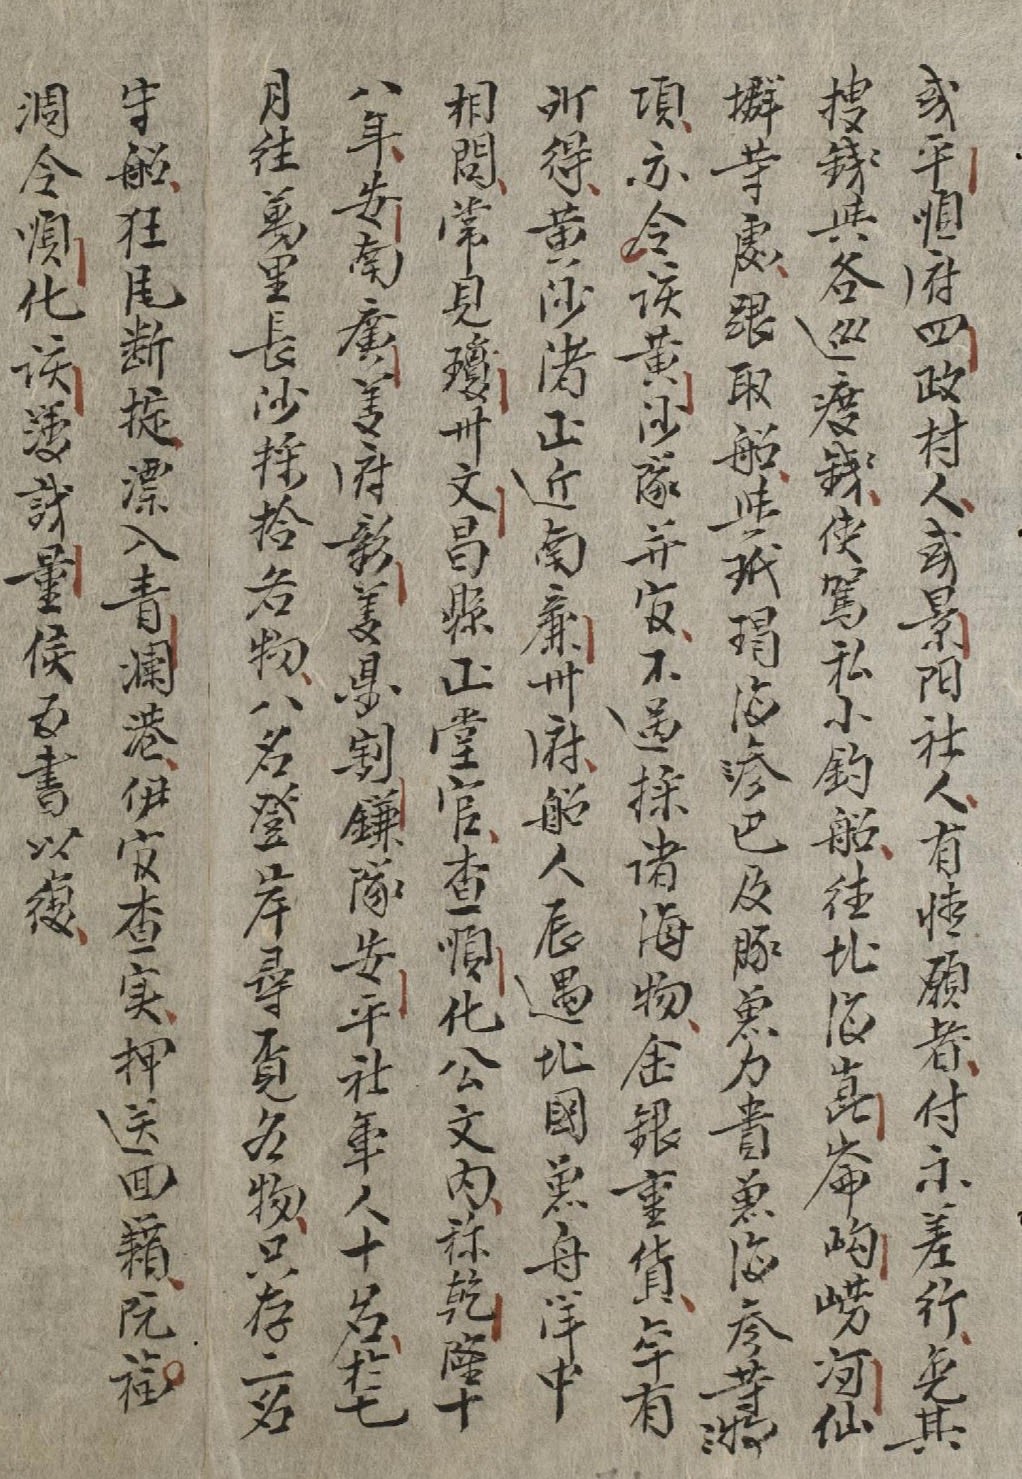 或平順府四政村人或景陽社人有情願者付示差行免其
搜錢與各巡渡錢使駕私小釣船往北海崑崙岣嶗河仙
㠊等處跟取船與玳瑁海滲巴及豚魚力貴魚海參等湖
項亦令该黄沙隊并官不過採諸海物金銀重貨罕有
所得黄沙渚正近南廉卅府船人辰遇北國魚舟洋中
相問常見瓊卅文昌縣正堂官查順化公文内称乾隆十
八年安南廣義府彰義県割鎌隊安平社軍人十名於七
月往萬里長沙採拾各物八名登岸尋覓各物只存二名
守船狂風断椗漂入青瀾港伊官查实押送回籍阮福
淍令順化该簿識量侯為書以復